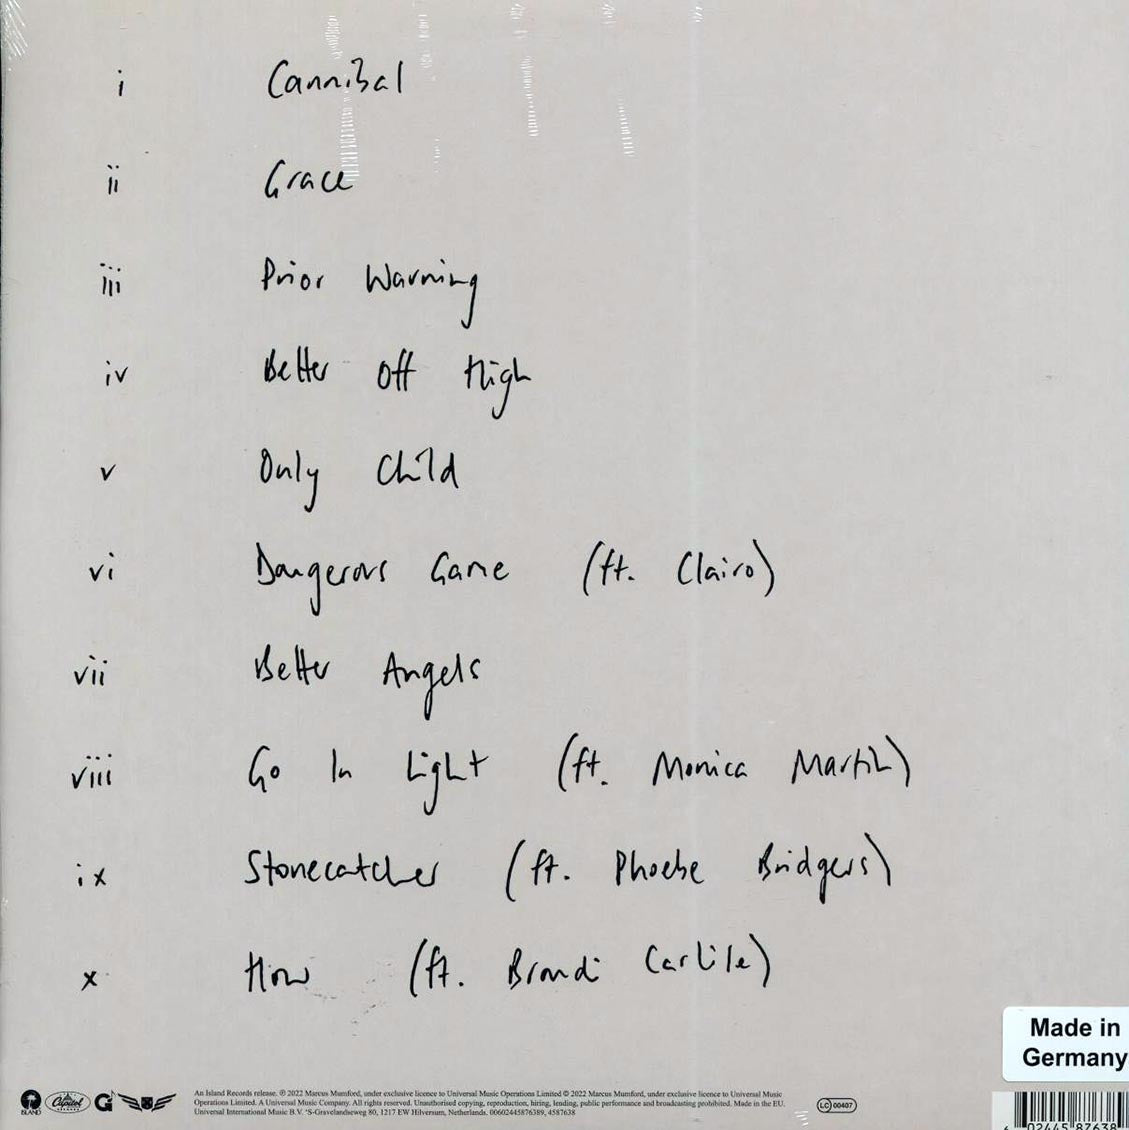 i Cannibal
ii Grace
iii Prior Warning
iv Better Off High
v Only Child
vi Dangerous Game (ft. Clairo)
vii Better Angels
viii Go In Light (ft. Monica Martin)
ix Stonecatcher (ft. Phoebe Bridgers)
x How (ft. Brandi Carlile)
Made in
Germany
ISLAND
Capitol
RECORDS
An Island Records release. ℗ 2022 Marcus Mumford, under exclusive licence to Universal Music Operations Limited © 2022 Marcus Mumford, under exclusive licence to Universal Music
Operations Limited. A Universal Music Company. All rights reserved. Unauthorised copying, reproduction, hiring, lending, public performance and broadcasting prohibited. Made in the EU.
Universal International Music B.V. 'S-Gravelandseweg 80, 1217 EW Hilversum, Netherlands. 00602445876389, 4587638
LC 00407
02445 87638